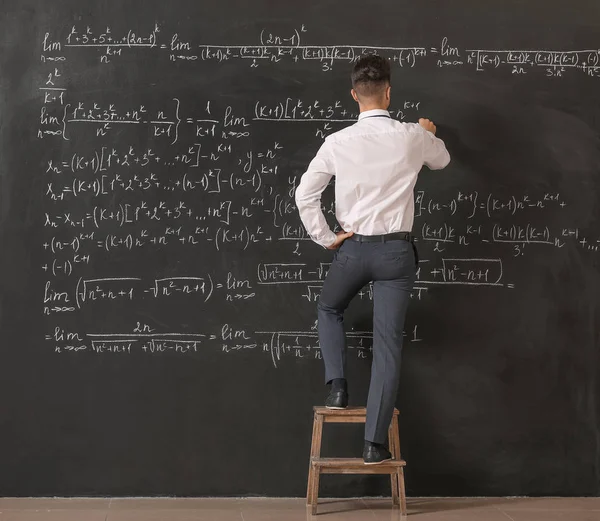 lim n→∞ (1^k+3^k+5^k+...+(2n-1)^k)/n^(k+1) = lim n→∞ (2n-1)^k/((k+1)n^k - (k+1)k/2 n^(k-1) + (k+1)k(k-1)/3! n^(k-2) ... +(-1)^(k+1)) = lim n→∞
2^k/(k+1)
lim n→∞ {(1^k+2^k+3^k+...+n^k)/n^k - n/(k+1)} = 1/(k+1) lim n→∞ (k+1)[1^k+2^k+3^k n^(k+1)
x_n=(k+1)[1^k+2^k+3^k+...+n^k]-n^(k+1), y=n^k
x_(n-1)=(k+1)[1^k+2^k+3^k+...+(n-1)^k]-(n-1)^(k+1), y
x_n-x_(n-1)=(k+1)[1^k+2^k+3^k+...+n^k]-n^(k+1)-{(k+1) ]-(n-1)^(k+1)}=(k+1)n^k-n^(k+1)+
+(n-1)^(k+1)=(k+1)n^k-n^(k+1)+n^(k+1)-(k+1)n^k+ (k+1)k/2 n^(k-1) - (k+1)k(k-1)/3! n^(k+1)+...
+(-1)^(k+1)
lim n→∞ (√(n²+n+1) - √(n²-n+1)) = lim n→∞ (√(n²+n+1) - + √(n²-n+1)) =
= lim n→∞ 2n/(√(n²+n+1) + √(n²-n+1)) = lim n→∞ 2 /n(√(1+1/n+